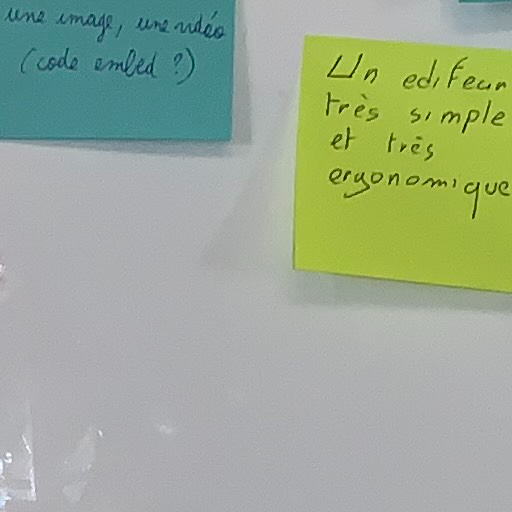 une image, une vidéo
(code embed ?)
Un editeur
très simple
et très
ergonomique